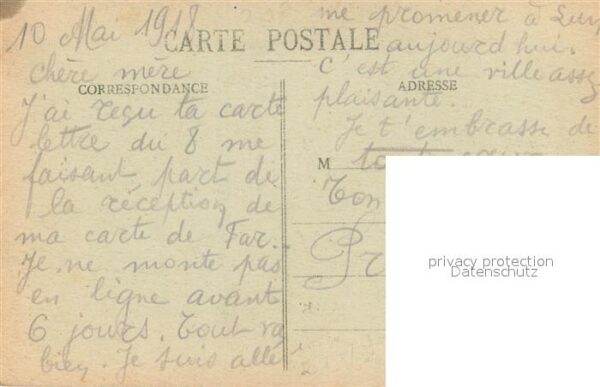 10 Mai 1918
CARTE POSTALE
chère mère
CORRESPONDANCE
J'ai reçu ta carte
lettre du 8 me
faisant part de
la réception de
ma carte de Far.
Je ne monte pas
en ligne avant
6 jours. Tout va
bien. Je suis allé
me promener à
aujourd hui.
c'est une ville assez
ADRESSE
plaisante.
Je t'embrasse de
M tout
Ton
privacy protection
Datenschutz